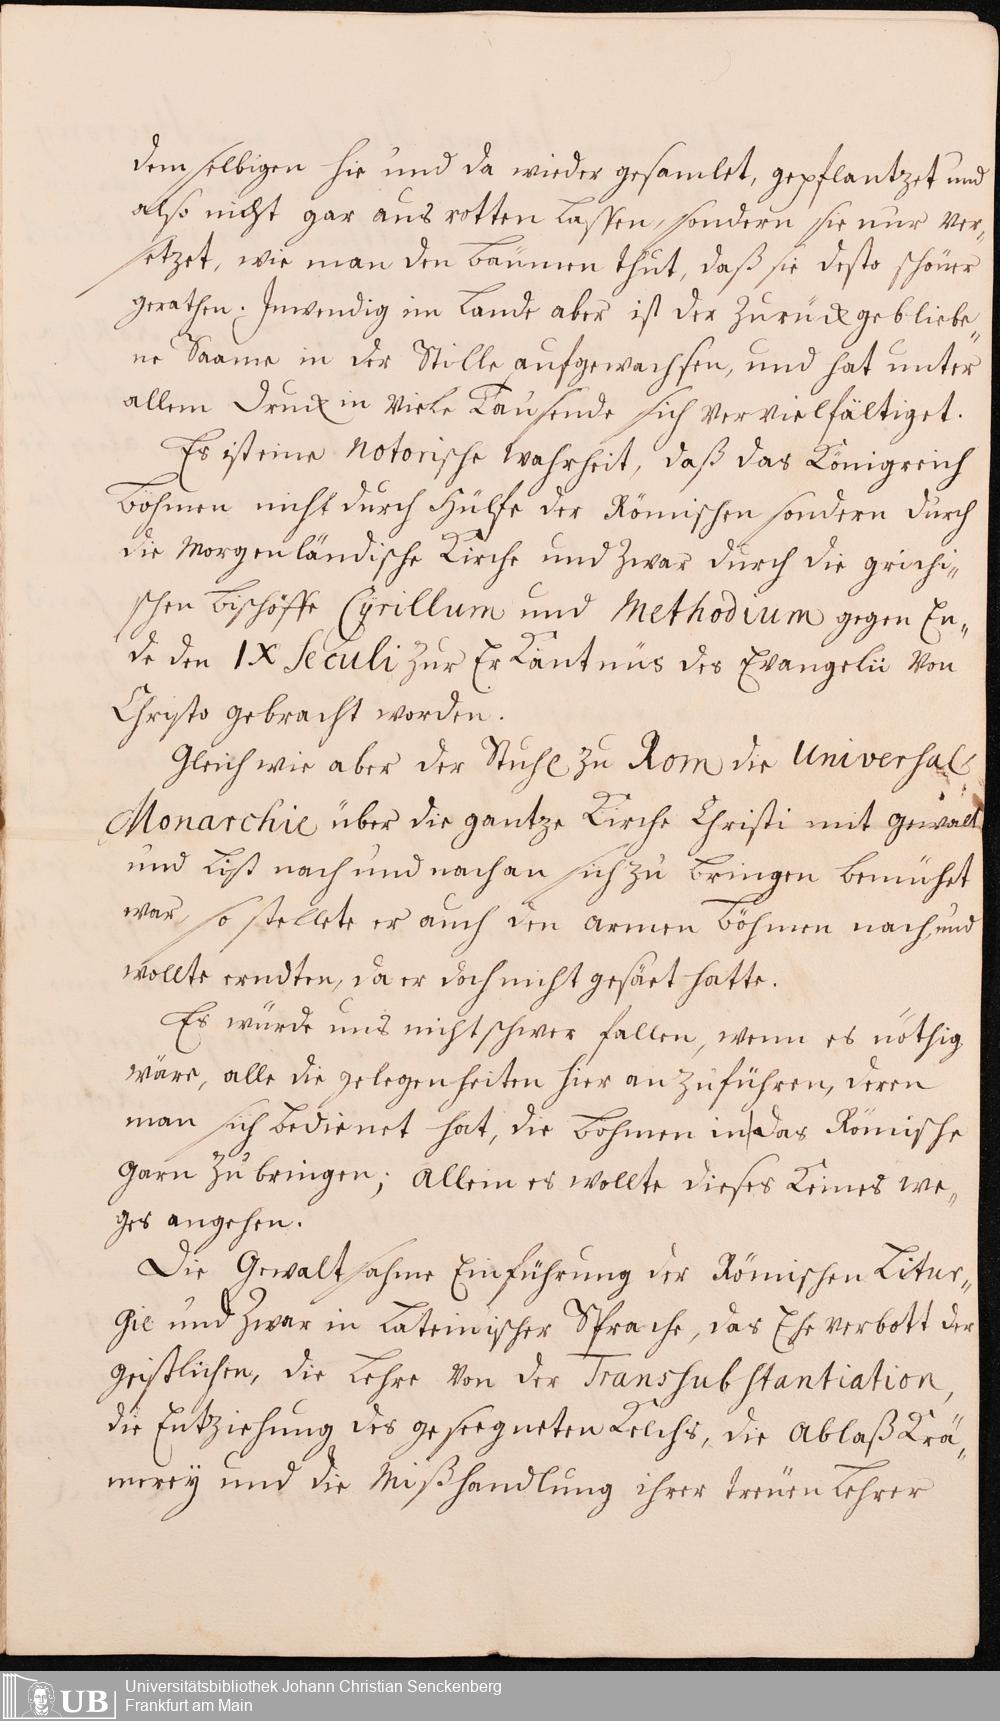 demselbigen hie und da wieder gesamlet, gepflantzet und
also nicht gar aus rotten lassen, sondern sie nur ver„
setzet, wie man den bäumen thut, daß sie desto schöner
gerathen. Inwendig im Lande aber ist der zurückgebliebe„
ne Saame in der Stille aufgewachsen, und hat unter
allem Druck in viele Tausende sich vervielfältiget.
Es ist eine notorische Wahrheit, daß das Königreich
Böhmen nicht durch Hülfe der Römischen sondern durch
die Morgenländische Kirche und zwar durch die grichi„
schen Bischöffe Cÿrillum und Methodium gegen En„
de den IX Seculi zur Erkäntnüs des Evangelii von
Christo gebracht worden.
Gleich wie aber der Stuhl zu Rom die Universal
Monarchie über die gantze Kirche Christi mit gewalt
und List nach und nach an sich zu bringen bemühet
war, so stellete er auch den armen Böhmen nach, und
wollte erndten, da er doch nicht gesäet hatte.
Es würde uns nicht schwer fallen, wenn es nöthig
wäre, alle die gelegenheiten hier anzuführen, deren
man sich bedienet hat, die Böhmen in das Römische
Garn zu bringen; allein es wollte dieses keines we„
ges angehen.
Die Gewaltsahme Einführung der Römischen Litur„
gie und zwar in Lateinischer Sprache, das Ehe verbott der
geistlichen, die Lehre von der Transsubstantiation,
die Entziehung des geseegneten Kelchs, die Ablaß Krä„
merey und die Mißhandlung ihrer treuen Lehrer
UB
Universitätsbibliothek Johann Christian Senckenberg
Frankfurt am Main